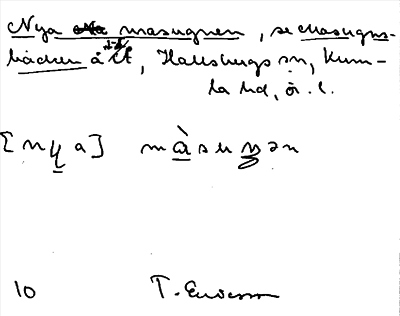 Nya masugnen, se Masugns-
bäcken å LÄ, Hallsbergs sn, Kum-
la hd, ör. l.
[nya] màsuŋən
10 T. Ericsson